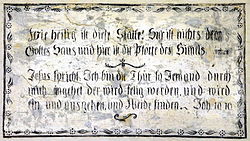 Wie heilig ist diese Stätte! Hie ist nichts denn
Gottes Haus, und hier ist die Pforte des Himels
Jesus spricht: Ich bin die Thür so Jemand durch
mich eingehet der wird selig werden, und wird
ein und ausgehen, und Weide finden. Joh 10